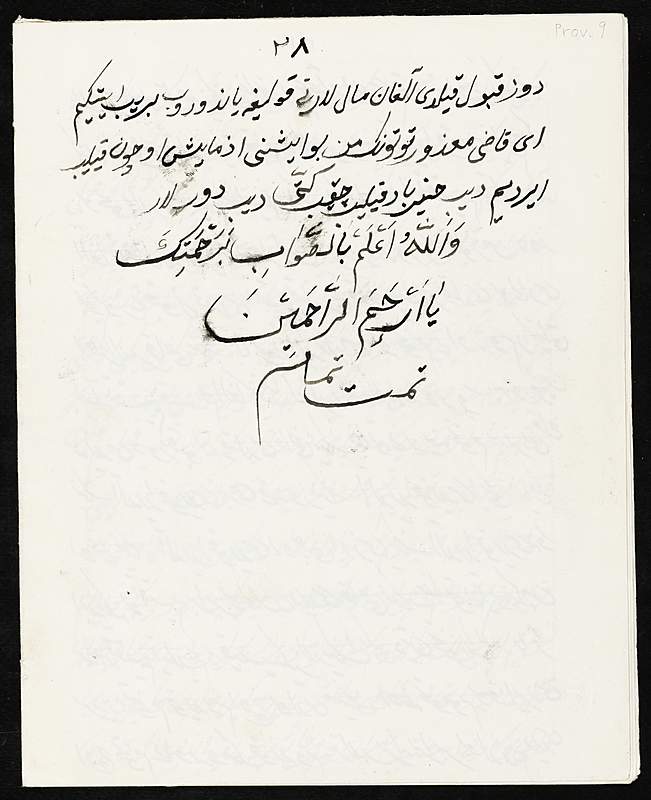 Prov. 9
٢٨
دوز قبول قیلدی آلغان مال لارنی قولیغه یاندوروب بریب ایتیکیم
ای قاضی معذور توتونک من بو ایشنی اذمایش اوچون قیلیب
ایردیم دیب خیرباد قیلیب چقیب کتتی دیب دورلار
وَاللّٰهُ اَعْلَمْ بِاالصَّوَابِ بَرَحْمَتِكَ
یَا اَرْحَمَ الرَّاحَمِیْنَ
تمت تمام